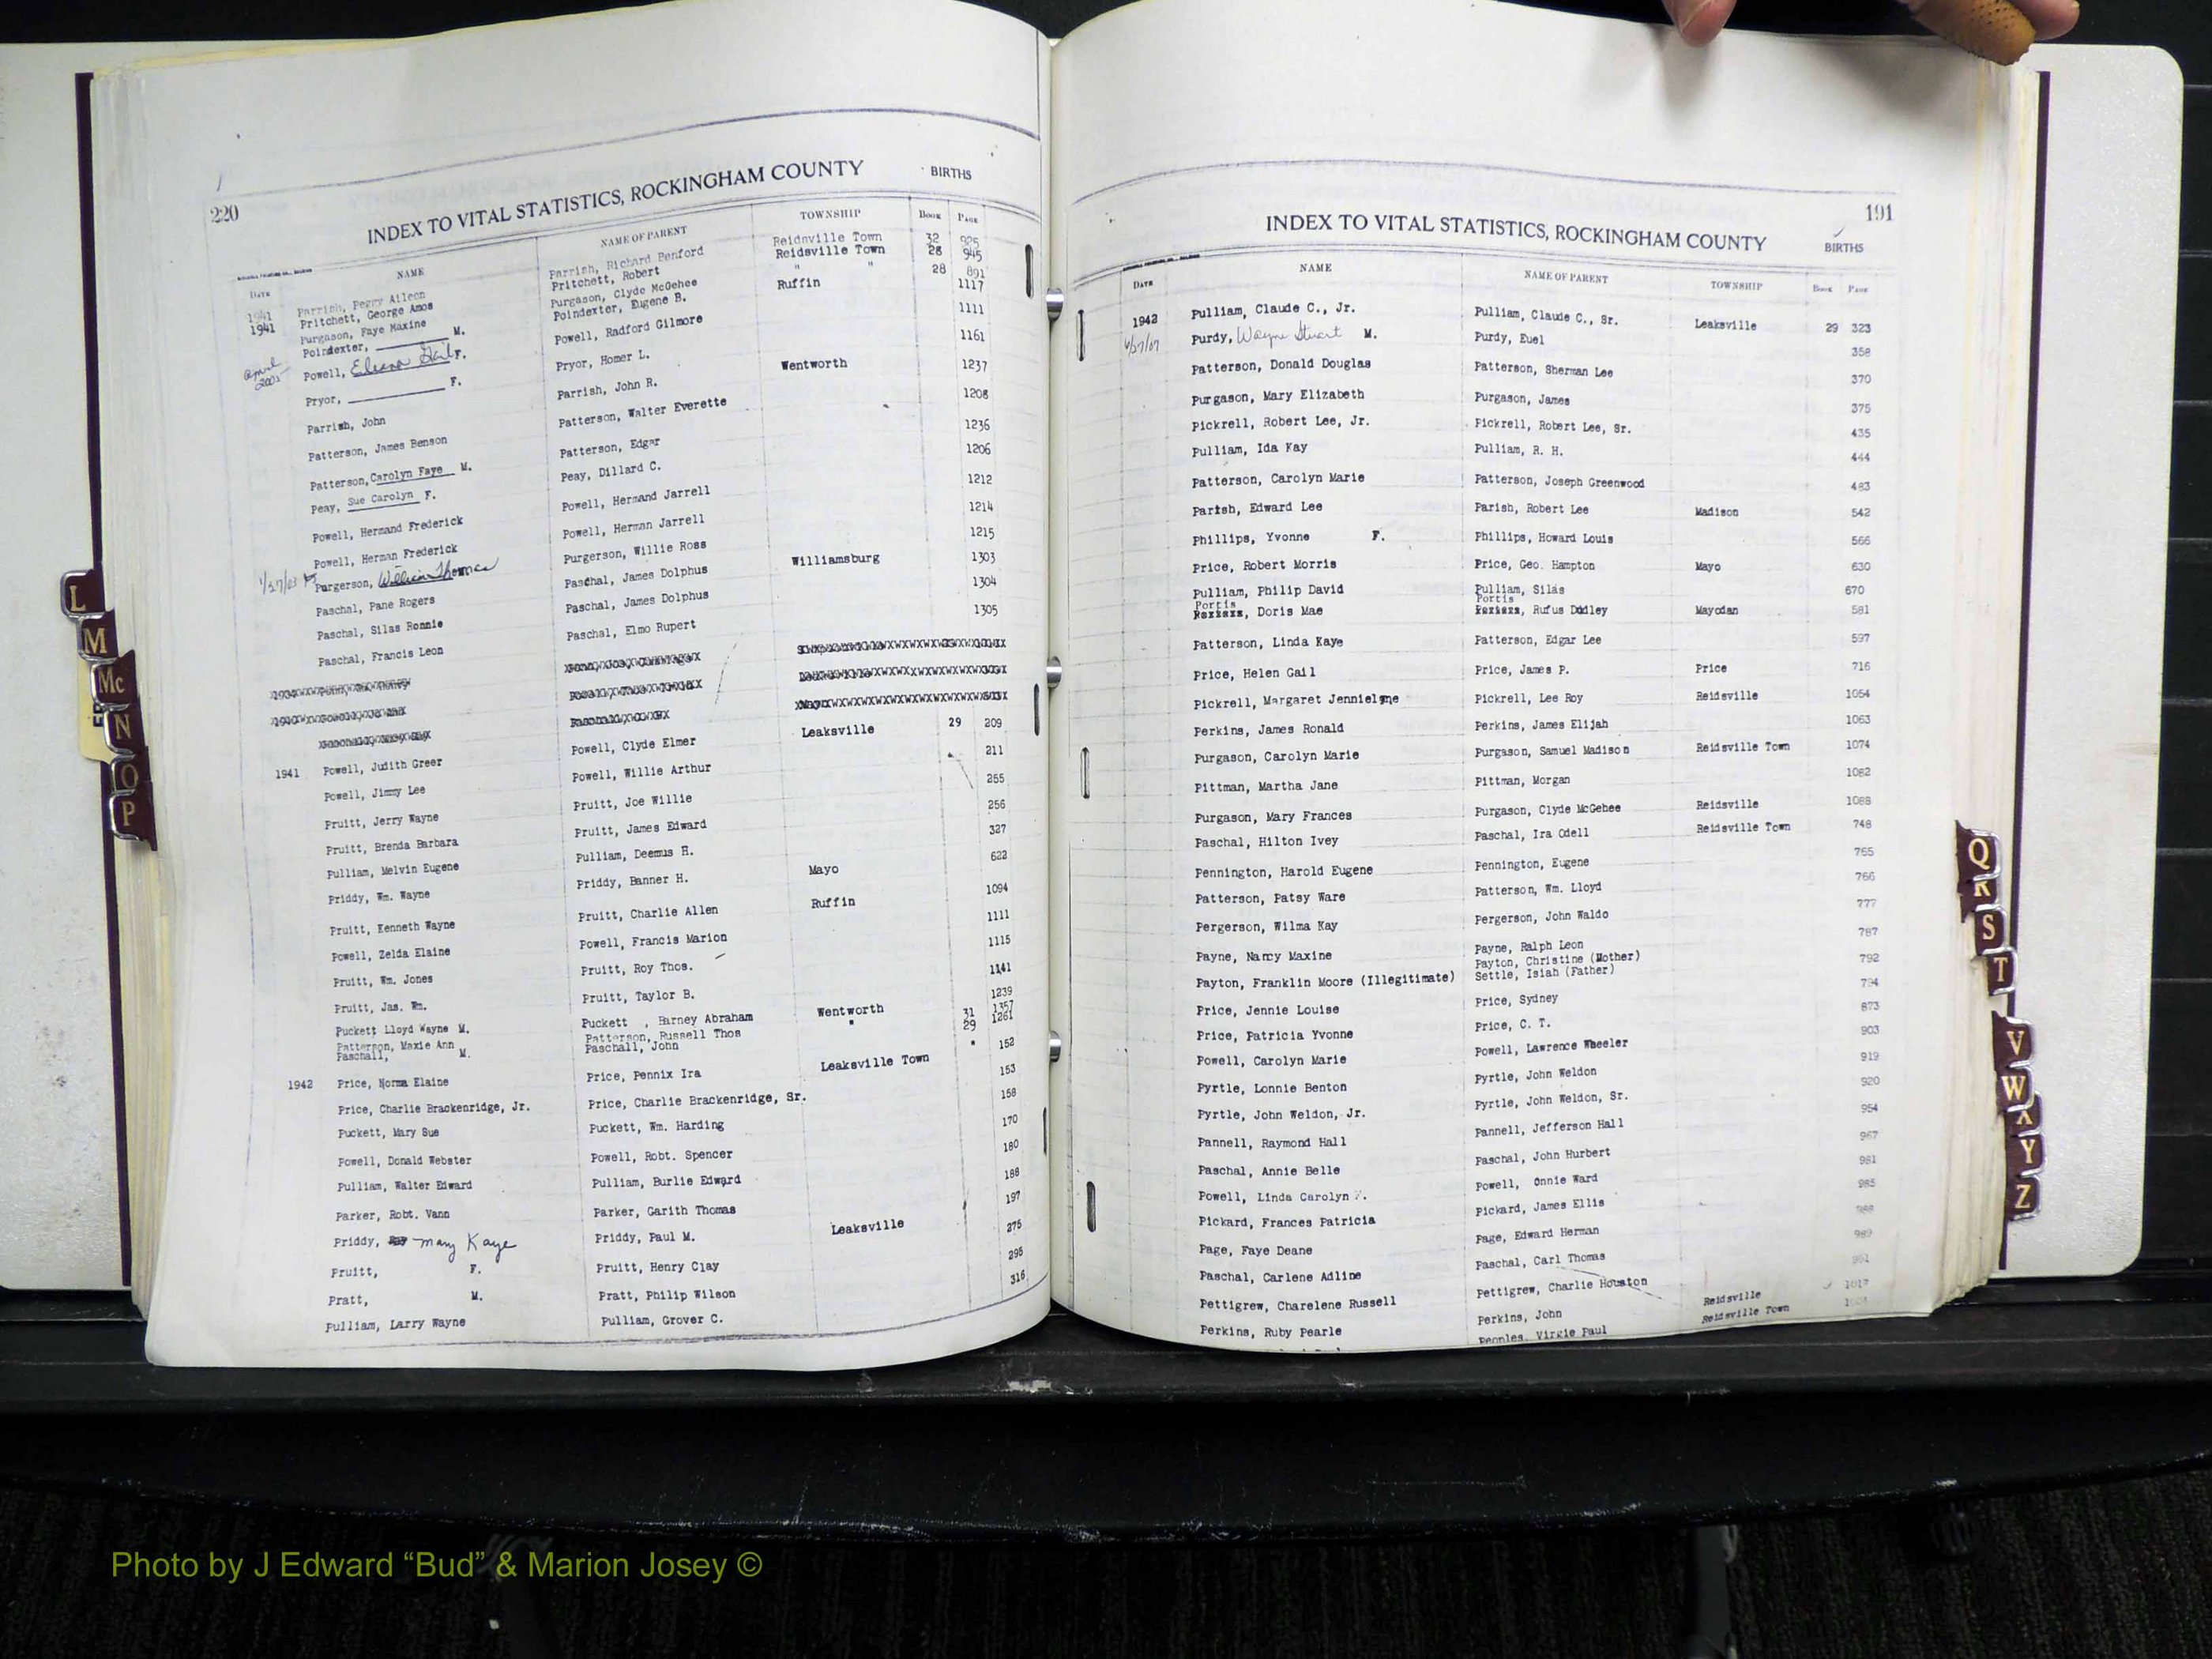 220
INDEX TO VITAL STATISTICS, ROCKINGHAM COUNTY BIRTHS
DATE NAME NAME OF PARENT TOWNSHIP BOOK PAGE
1941 Parrish, Peggy Aileen Parrish, Richard Benford Reidsville Town 32 925
1941 Pritchett, George Amos Pritchett, Robert Reidsville Town 28 945
Purgason, Faye Maxine Purgason, Clyde McGehee " " 28 891
Poindexter, M. Poindexter, Eugene B. Ruffin 1117
April 2005 Powell, F. Powell, Radford Gilmore 1111
Pryor, F. Pryor, Homer L. 1161
Parrish, John Parrish, John R. Wentworth 1237
Patterson, James Benson Patterson, Walter Everette 1208
Patterson, Carolyn Faye M. Patterson, Edgar 1236
Peay, Sue Carolyn F. Peay, Dillard C. 1206
Powell, Hermand Frederick Powell, Hermand Jarrell 1212
Powell, Herman Frederick Powell, Herman Jarrell 1214
Purgerson, William Thomas Purgerson, Willie Ross 1215
Paschal, Pane Rogers Paschal, James Dolphus Williamsburg 1303
Paschal, Silas Ronnie Paschal, James Dolphus 1304
Paschal, Francis Leon Paschal, Elmo Rupert 1305
1941 Powell, Judith Greer Powell, Clyde Elmer Leaksville 29 209
Powell, Jimmy Lee Powell, Willie Arthur 211
Pruitt, Jerry Wayne Pruitt, Joe Willie 255
Pruitt, Brenda Barbara Pruitt, James Edward 256
Pulliam, Melvin Eugene Pulliam, Deemus H. 327
Priddy, Wm. Wayne Priddy, Banner H. Mayo 622
Pruitt, Kenneth Wayne Pruitt, Charlie Allen Ruffin 1094
Powell, Zelda Elaine Powell, Francis Marion 1111
Pruitt, Wm. Jones Pruitt, Roy Thos. 1115
Pruitt, Jas. Wm. Pruitt, Taylor B. 1141
Puckett Lloyd Wayne M. Puckett , Barney Abraham Wentworth 1239
Patterson, Maxie Ann Patterson, Russell Thos " 31 1357
Paschall, M. Paschall, John 29 1261
1942 Price, Norma Elaine Price, Pennix Ira Leaksville Town " 152
Price, Charlie Brackenridge, Jr. Price, Charlie Brackenridge, Sr. 153
Puckett, Mary Sue Puckett, Wm. Harding 158
Powell, Donald Webster Powell, Robt. Spencer 170
Pulliam, Walter Edward Pulliam, Burlie Edward 180
Parker, Robt. Vann Parker, Garith Thomas 188
Priddy, Mary Kaye Priddy, Paul M. 197
Pruitt, F. Pruitt, Henry Clay Leaksville 275
Pratt, M. Pratt, Philip Wilson 295
Pulliam, Larry Wayne Pulliam, Grover C. 316
191
INDEX TO VITAL STATISTICS, ROCKINGHAM COUNTY BIRTHS
DATE NAME NAME OF PARENT TOWNSHIP BOOK PAGE
1942 Pulliam, Claude C., Jr. Pulliam, Claude C., Sr. Leaksville 29 323
Purdy, Wayne Stuart M. Purdy, Euel 358
Patterson, Donald Douglas Patterson, Sherman Lee 370
Purgason, Mary Elizabeth Purgason, James 375
Pickrell, Robert Lee, Jr. Pickrell, Robert Lee, Sr. 435
Pulliam, Ida Kay Pulliam, R. H. 444
Patterson, Carolyn Marie Patterson, Joseph Greenwood 483
Parish, Edward Lee Parish, Robert Lee Madison 542
Phillips, Yvonne F. Phillips, Howard Louis 566
Price, Robert Morris Price, Geo. Hampton Mayo 630
Pulliam, Philip David Pulliam, Silas 670
Portis, Doris Mae Portis, Rufus Dudley Mayodan 581
Patterson, Linda Kaye Patterson, Edgar Lee 597
Price, Helen Gail Price, James P. Price 716
Pickrell, Margaret Jennielyne Pickrell, Lee Roy Reidsville 1054
Perkins, James Ronald Perkins, James Elijah 1063
Purgason, Carolyn Marie Purgason, Samuel Madison Reidsville Town 1074
Pittman, Martha Jane Pittman, Morgan 1082
Purgason, Mary Frances Purgason, Clyde McGehee Reidsville 1088
Paschal, Hilton Ivey Paschal, Ira Odell Reidsville Town 748
Pennington, Harold Eugene Pennington, Eugene 765
Patterson, Patsy Ware Patterson, Wm. Lloyd 766
Pergerson, Wilma Kay Pergerson, John Waldo 777
Payne, Nancy Maxine Payne, Ralph Leon 787
Payton, Franklin Moore (Illegitimate) Payton, Christine (Mother) 792
Settle, Isiah (Father)
Price, Jennie Louise Price, Sydney 794
Price, Patricia Yvonne Price, C. T. 873
Powell, Carolyn Marie Powell, Lawrence Wheeler 903
Pyrtle, Lonnie Benton Pyrtle, John Weldon 919
Pyrtle, John Weldon, Jr. Pyrtle, John Weldon, Sr. 920
Pannell, Raymond Hall Pannell, Jefferson Hall 954
Paschal, Annie Belle Paschal, John Hurbert 967
Powell, Linda Carolyn F. Powell, Onnie Ward 981
Pickard, Frances Patricia Pickard, James Ellis 985
Page, Faye Deane Page, Edward Herman 988
Paschal, Carlene Adline Paschal, Carl Thomas 989
Pettigrew, Charelene Russell Pettigrew, Charlie Houston
Perkins, Ruby Pearle Perkins, John Reidsville 1017
Peoples, Virgie Paul Reidsville Town
L
M
Mc
N
O
P
Q
R
S
T
V
W
X
Y
Z
Photo by J Edward “Bud” & Marion Josey ©